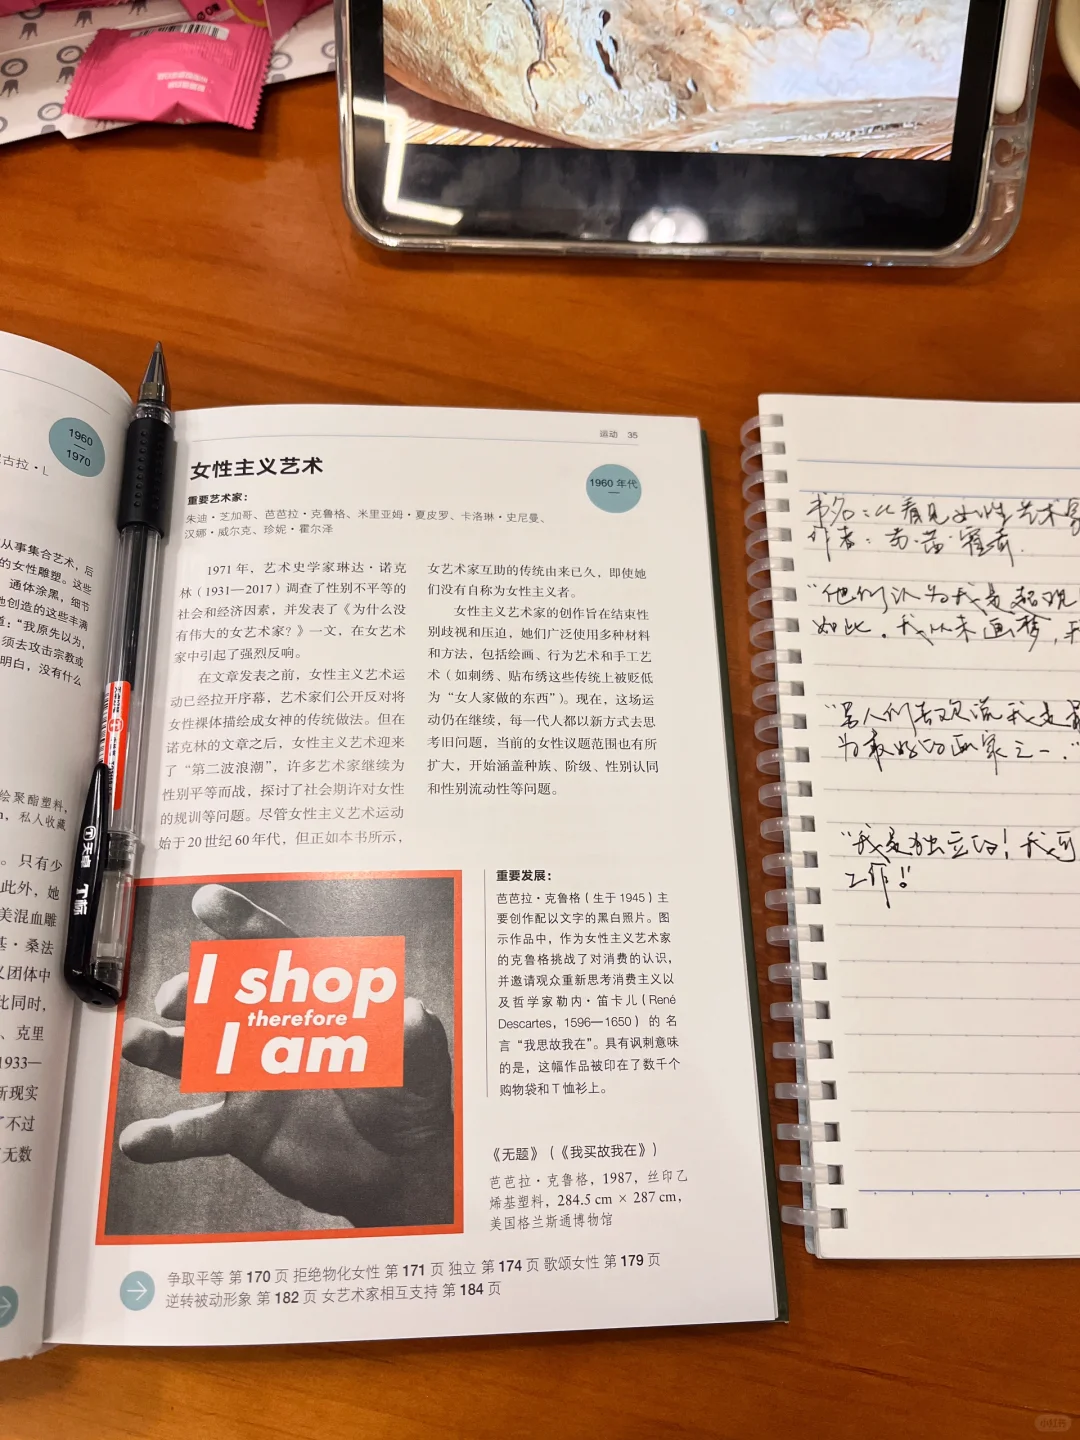 1960
—
1970
古拉·L
从事集合艺术，后
的女性雕塑。这些
通体涂黑，细节
她创造的这些丰满
道：“我原先以为，
须去攻击宗教或
明白，没有什么
绘聚酯塑料，
m，私人收藏
。只有少
此外，她
美混血雕
基·桑法
义团体中
此同时，
、克里
1933—
新现实
了不过
无数
天卓
T标
运动 35
女性主义艺术
1960 年代
—
重要艺术家：
朱迪·芝加哥、芭芭拉·克鲁格、米里亚姆·夏皮罗、卡洛琳·史尼曼、
汉娜·威尔克、珍妮·霍尔泽
1971 年，艺术史学家琳达·诺克
林（1931—2017）调查了性别不平等的
社会和经济因素，并发表了《为什么没
有伟大的女艺术家？》一文，在女艺术
家中引起了强烈反响。
在文章发表之前，女性主义艺术运
动已经拉开序幕，艺术家们公开反对将
女性裸体描绘成女神的传统做法。但在
诺克林的文章之后，女性主义艺术迎来
了“第二波浪潮”，许多艺术家继续为
性别平等而战，探讨了社会期许对女性
的规训等问题。尽管女性主义艺术运动
始于 20 世纪 60 年代，但正如本书所示，
女艺术家互助的传统由来已久，即使她
们没有自称为女性主义者。
女性主义艺术家的创作旨在结束性
别歧视和压迫，她们广泛使用多种材料
和方法，包括绘画、行为艺术和手工艺
术（如刺绣、贴布绣这些传统上被贬低
为“女人家做的东西”）。现在，这场运
动仍在继续，每一代人都以新方式去思
考旧问题，当前的女性议题范围也有所
扩大，开始涵盖种族、阶级、性别认同
和性别流动性等问题。
I shop
therefore
I am
重要发展：
芭芭拉·克鲁格（生于 1945）主
要创作配以文字的黑白照片。图
示作品中，作为女性主义艺术家
的克鲁格挑战了对消费的认识，
并邀请观众重新思考消费主义以
及哲学家勒内·笛卡儿（René
Descartes，1596—1650）的名
言“我思故我在”。具有讽刺意味
的是，这幅作品被印在了数千个
购物袋和 T 恤衫上。
《无题》（《我买故我在》）
芭芭拉·克鲁格，1987，丝印乙
烯基塑料，284.5 cm × 287 cm，
美国格兰斯通博物馆
争取平等 第 170 页 拒绝物化女性 第 171 页 独立 第 174 页 歌颂女性 第 179 页
逆转被动形象 第 182 页 女艺术家相互支持 第 184 页
书名：从看见女性艺术家
作者：苏·茜·霍奇.
“他们认为我是超现
如此。我从未画梦，我
“男人们喜欢说我是最
为最好的画家之一.”
“我是独立的！我可
工作！”
小红书